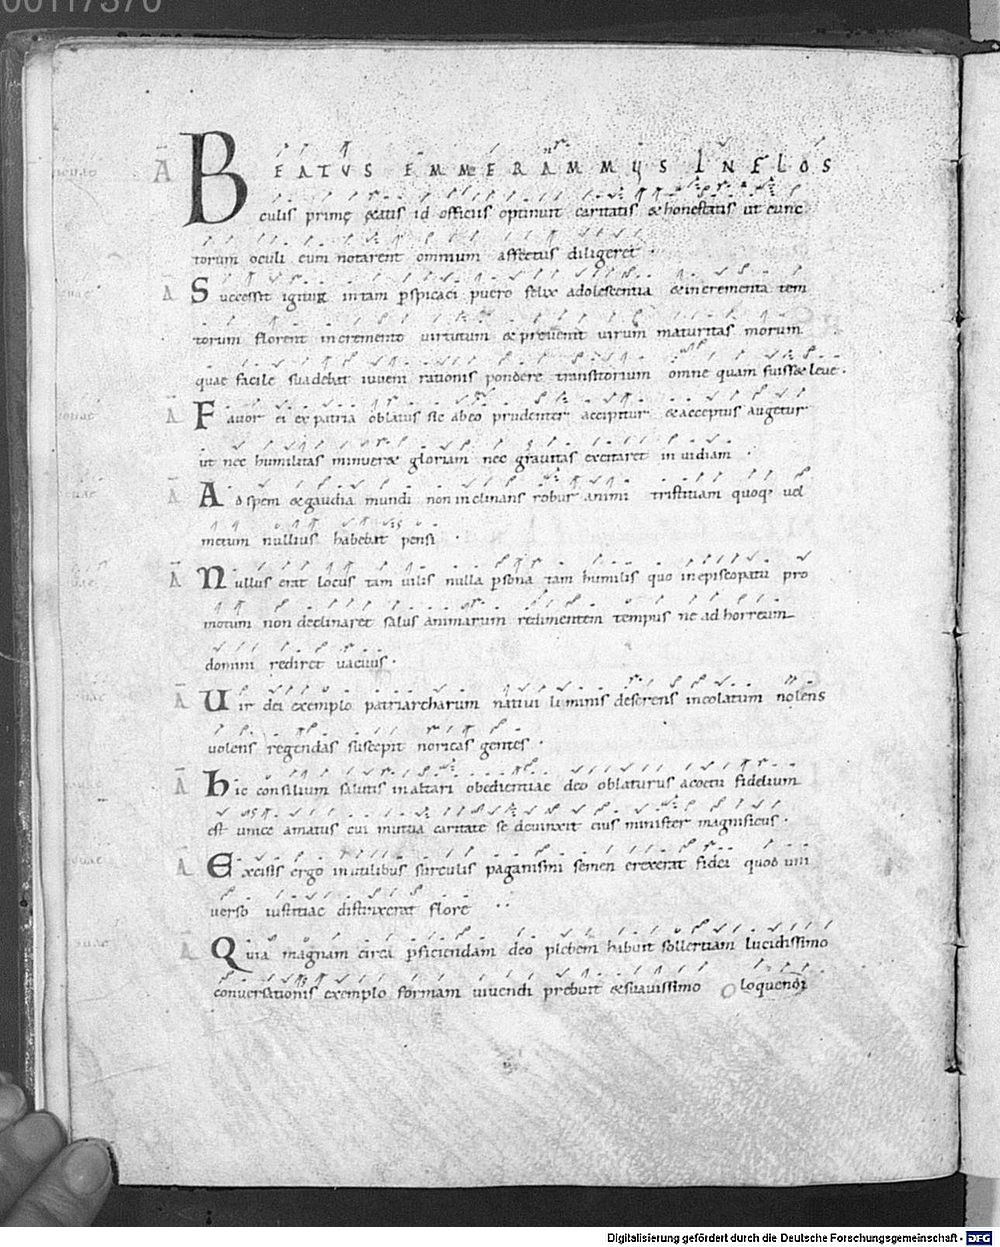 00117370
A BEATVS EMMERAMMVS IN FLOS
culis primę ętatis id officiis optinuit caritatis & honestatis ut cunc
torum oculi eum notarent omnium affectus diligeret .
A Successit igitur in tam pspicaci puero felix adolescentia & incrementa tem
torum florent incremento uirtutum & preuenit uirum maturitas morum
quae facile suadebat iuueni rationis pondere transitorium omne quam fuiss& leue .
A Fauor ei ex patria oblatus sic ab eo prudenter accipitur & acceptus augetur
ut nec humilitas minuer& gloriam nec grauitas excitaret inuidiam .
A Ad spem & gaudia mundi non inclinans robur animi tristitiam quoq; uel
metum nullius habebat pensi .
A Nullus erat locus tam uilis nulla psona tam humilis quo in episcopatu pro
motum non declinaret salus animarum redimentem tempus ne ad horreum
domini rediret uacuus .
A Uir dei exemplo patriarcharum natiui luminis deserens incolatum nolens
uolens regendas suscepit noricas gentes .
A Hic consilium salutis in altari obedientiae deo oblaturus a coetu fidelium
est unice amatus cui mutua caritate se deuinxit eius minister magnificus .
A Excisis ergo inutilibus surculis paganismi semen erexerat fidei quod uni
uerso iustitiae distrinxerat flore
A Quia magnam circa pficiendam deo plebem habuit sollertiam lucidissimo
conuersationis exemplo formam uiuendi prebuit & suauissimo loquendi
Digitalisierung gefördert durch die Deutsche Forschungsgemeinschaft - DFG